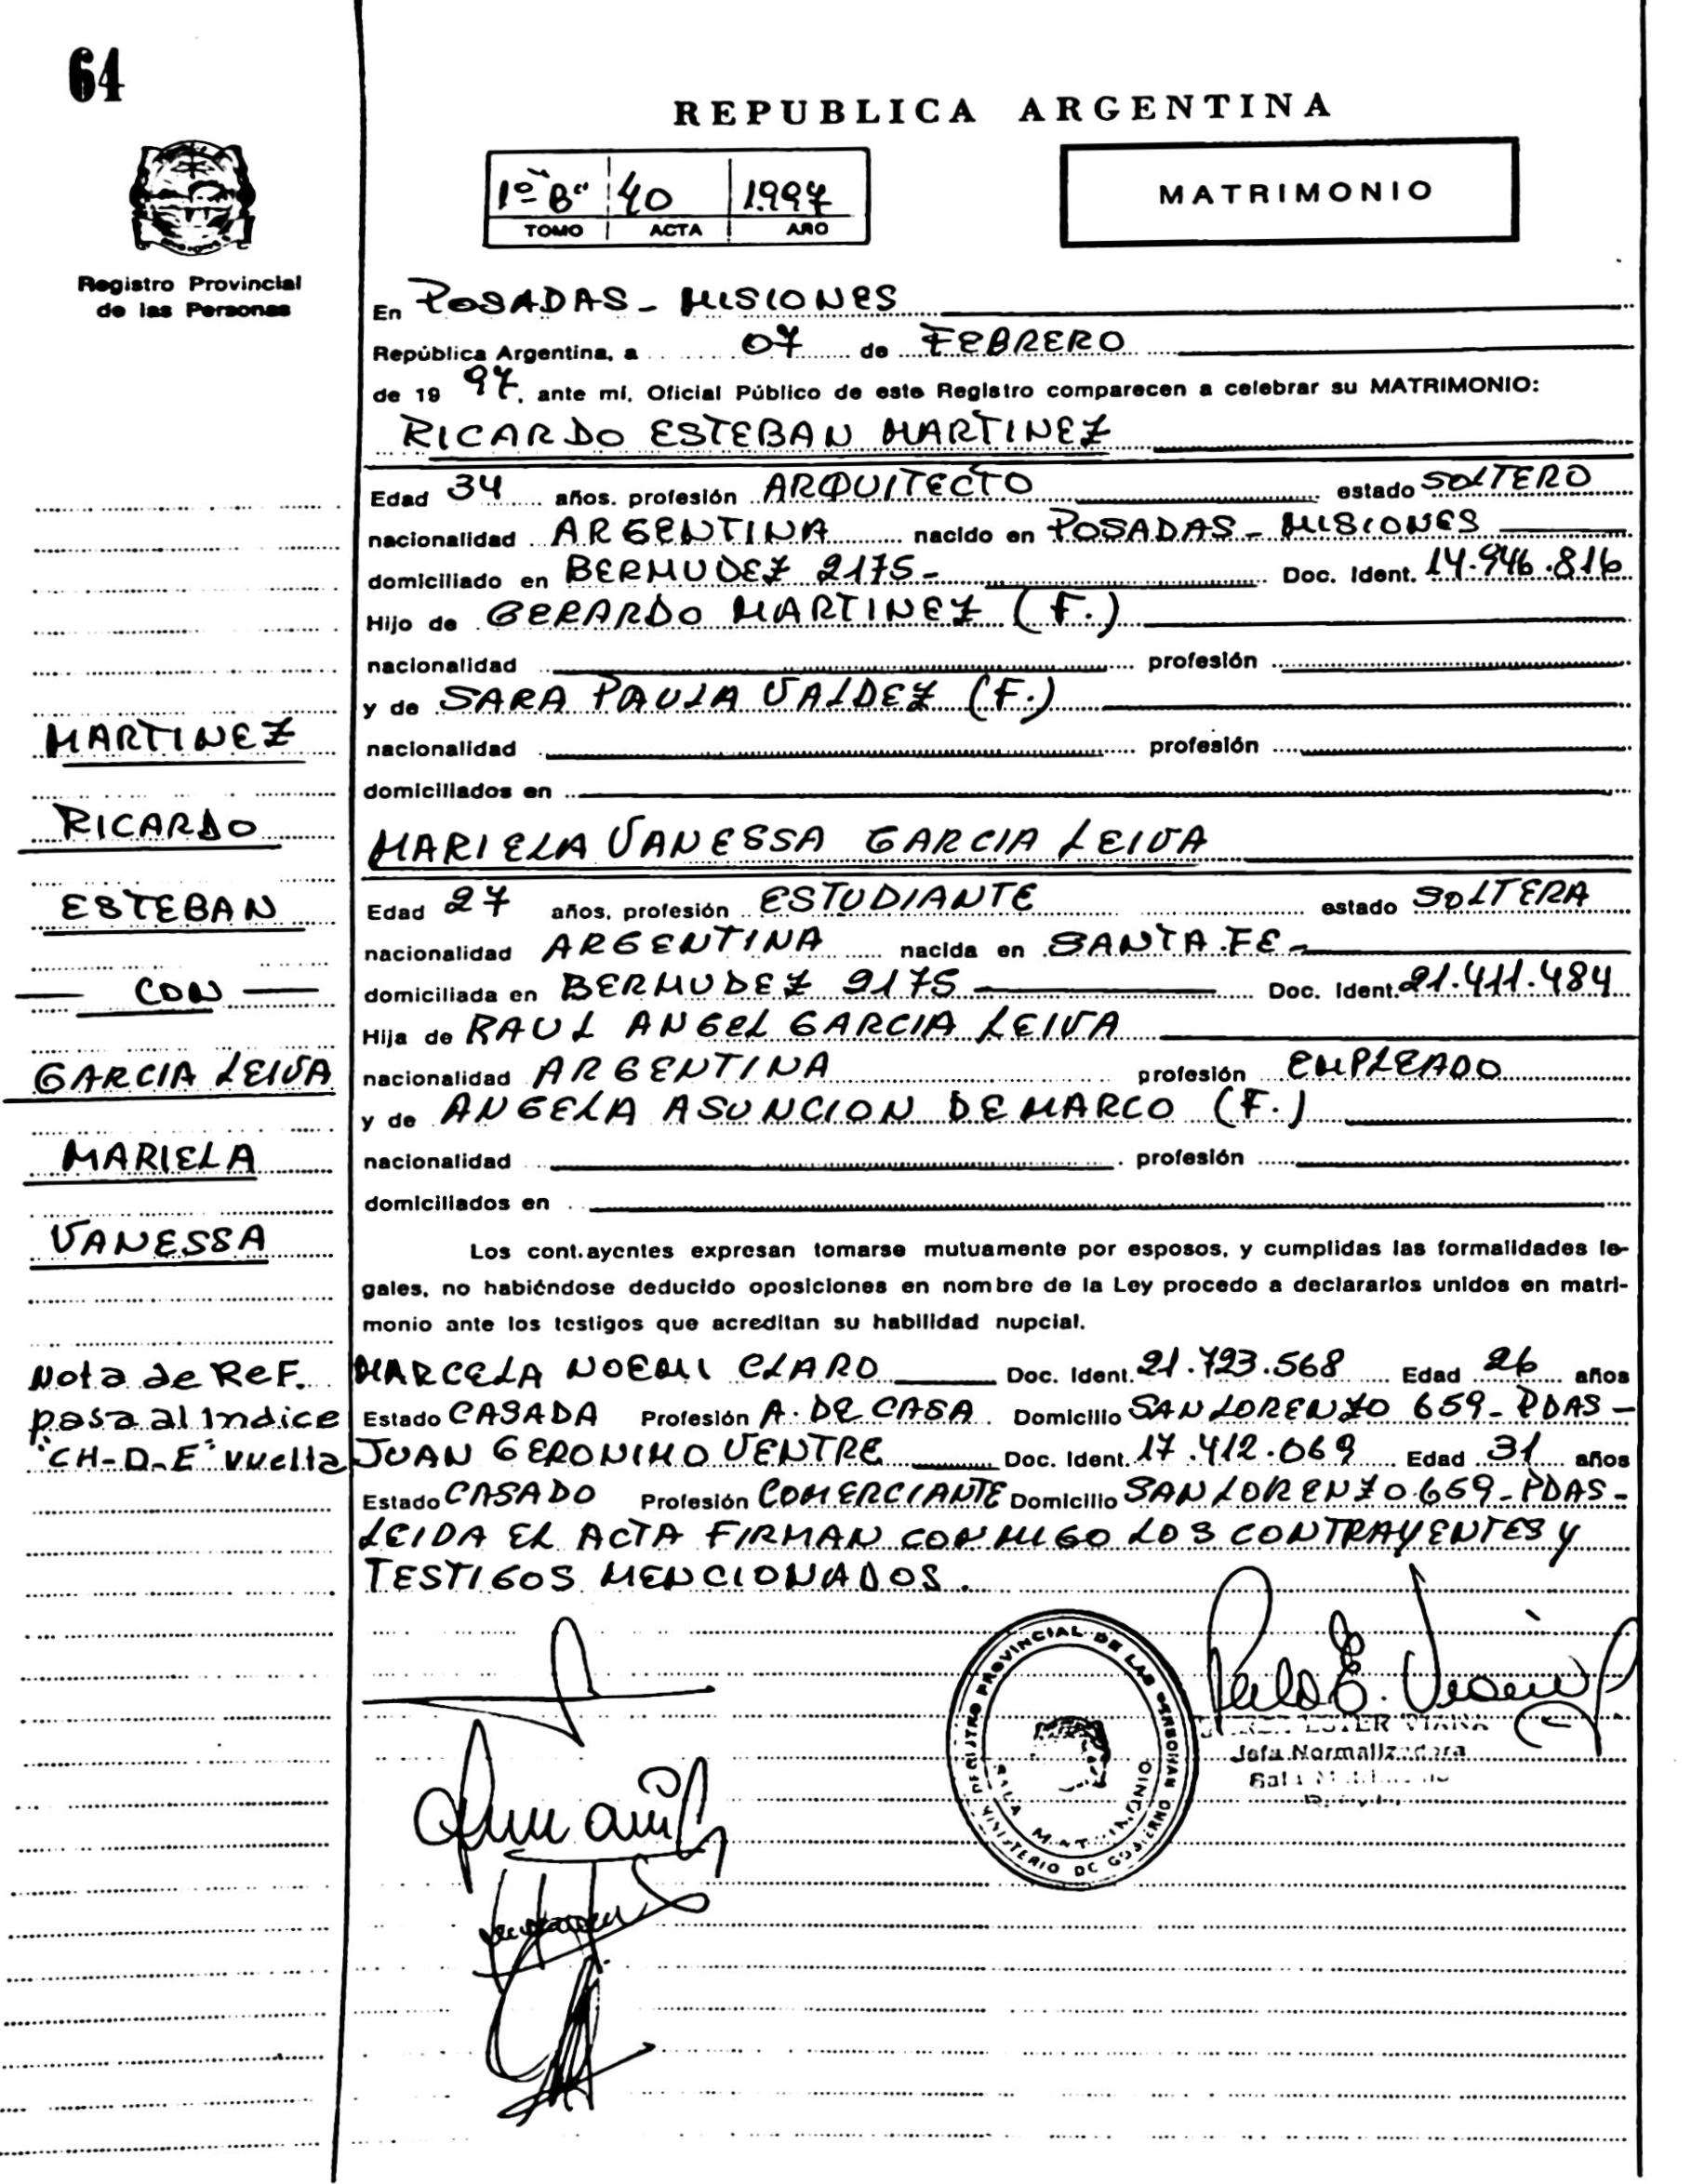 64
REPUBLICA ARGENTINA
1º "B" 40 1.997
TOMO ACTA AÑO
MATRIMONIO
Registro Provincial
de las Personas
En POSADAS - MISIONES
República Argentina, a 07 de FEBRERO
de 19 97, ante mí, Oficial Público de este Registro comparecen a celebrar su MATRIMONIO:
RICARDO ESTEBAN MARTINEZ
Edad 34 años, profesión ARQUITECTO estado SOLTERO
nacionalidad ARGENTINA nacido en POSADAS - MISIONES
domiciliado en BERMUDEZ 2175 - Doc. Ident. 14.946.816
Hijo de GERARDO MARTINEZ (F.)
nacionalidad profesión
y de SARA PAULA VALDEZ (F.)
nacionalidad profesión
domiciliados en
MARIELA VANESSA GARCIA LEIVA
Edad 27 años, profesión ESTUDIANTE estado SOLTERA
nacionalidad ARGENTINA nacida en SANTA FE -
domiciliada en BERMUDEZ 2175 Doc. Ident. 21.411.484
Hija de RAUL ANGEL GARCIA LEIVA
nacionalidad ARGENTINA profesión EMPLEADO
y de ANGELA ASUNCION DEMARCO (F.)
nacionalidad profesión
domiciliados en
MARTINEZ
RICARDO
ESTEBAN
CON
GARCIA LEIVA
MARIELA
VANESSA
Los cont.ayentes expresan tomarse mutuamente por esposos, y cumplidas las formalidades le-
gales, no habiéndose deducido oposiciones en nombre de la Ley procedo a declararlos unidos en matri-
monio ante los testigos que acreditan su habilidad nupcial.
MARCELA NOEMI CLARO Doc. Ident. 21.723.568 Edad 26 años
Estado CASADA Profesión A. DE CASA Domicilio SAN LORENZO 659 - PDAS -
JUAN GERONIMO VENTRE Doc. Ident. 17.412.069 Edad 31 años
Estado CASADO Profesión COMERCIANTE Domicilio SAN LORENZO 659 - PDAS -
LEIDA EL ACTA FIRMAN CONMIGO LOS CONTRAYENTES Y
TESTIGOS MENCIONADOS.
Nota de Ref.
pasa al indice
"CH-D-E" vuelta
REGISTRO PROVINCIAL DE LAS PERSONAS
MINISTERIO DE GOBIERNO
SALA MATRIMONIO
ESTER VIANA
Jefa Normalizadora
Sala